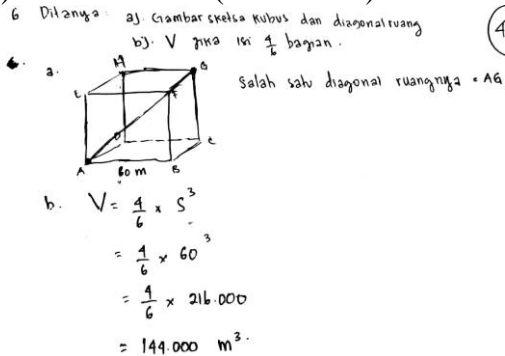 6 Ditanya : a). Gambar sketsa kubus dan diagonal ruang
b). V jika isi 4/6 bagian.
4
a.
H G
E F
D C
A B
60 m
Salah satu diagonal ruangnya = AG
b. V = 4/6 x S³
= 4/6 x 60³
= 4/6 x 216.000
= 144.000 m³.